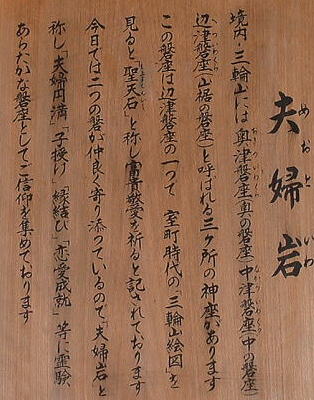 夫婦岩
境内・三輪山には奥津磐座(奥の磐座)中津磐座(中の磐座)
辺津磐座(山裾の磐座)と呼ばれる三ヶ所の神座があります
この磐座は辺津磐座の一つで 室町時代の「三輪山絵図」を
見ると「聖天石」と称し富貴敬愛を祈ると記されております
今日では二つの磐が仲良く寄り添っているので「夫婦岩」と
称し「夫婦円満」「子授け」「縁結び」「恋愛成就」等に霊験
あらたかな磐座としてご信仰を集めております